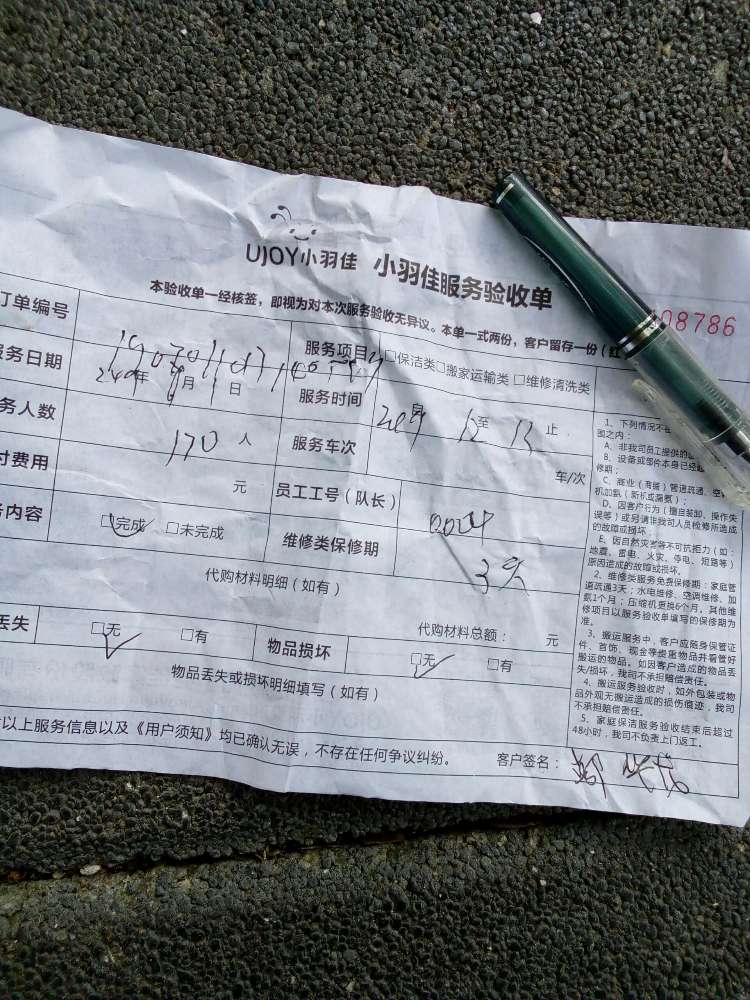 UJOY小羽佳 小羽佳服务验收单
08786
本验收单一经核签，即视为对本次服务验收无异议。本单一式两份，客户留存一份（红
订单编号
服务项目 □保洁类□搬家运输类 □维修清洗类
务日期 年 月 日 服务时间 至 13 止
务人数 170 人 服务车次 车/次
付费用 元 员工工号（队长） 0024
内容 □完成 □未完成 维修类保修期 3天
代购材料明细（如有）
代购材料总额： 元
丢失 □无 □有 物品损坏 □无 □有
物品丢失或损坏明细填写（如有）
以上服务信息以及《用户须知》均已确认无误，不存在任何争议纠纷。 客户签名：
1、下列情况不在
围之内：
A、非我司员工提供的
B、设备或部件本身已经超
修期；
C、商业（商铺）管道疏通、空
机加氨（新机或漏氨）；
D、因客户行为（擅自装卸、操作失
误等）或另请非我司人员检修所造成
的故障或损坏
E、因自然灾害等不可抗拒力（如：
地震、雷电、火灾、停电、短路等）
原因造成的故障或损坏。
2、维修类服务免费保修期：家庭管
道疏通3天；水电维修、空调维修、加
氨1个月；压缩机更换6个月，其他维
修项目以服务验收单填写的保修期为
准。
3、搬运服务中，客户应随身保管证
件、首饰、现金等贵重物品并看管好
搬运的物品。如因客户造成的物品丢
失/损坏，我司不承担赔偿责任。
4、搬运服务验收时，如外包装或物
品外观无搬运造成的损伤痕迹，我司
不承担赔偿责任。
5、家庭保洁服务验收结束后超过
48小时，我司不负责上门返工。